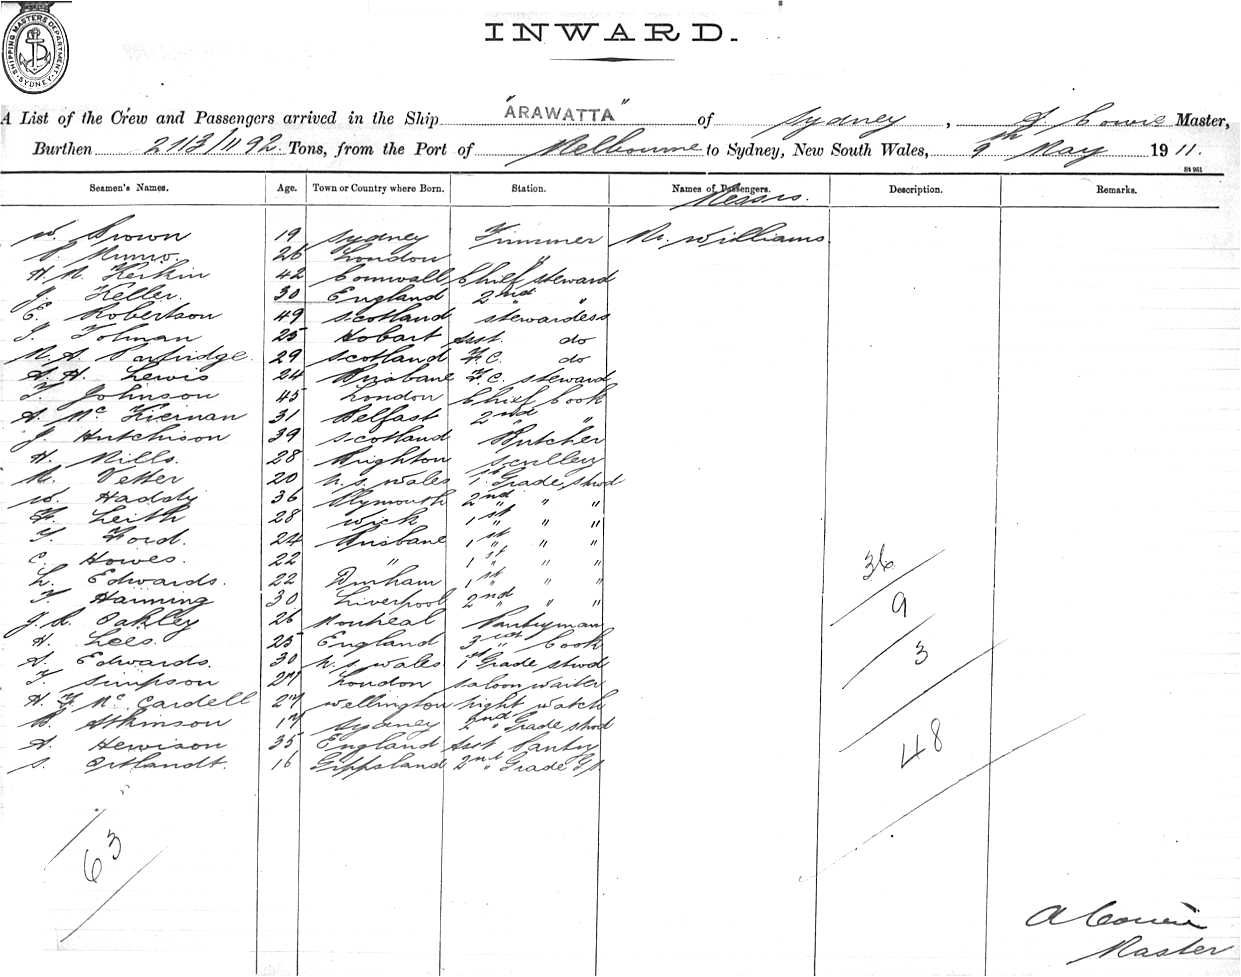 SHIPPING MASTERS DEPARTMENT SYDNEY
INWARD.
A List of the Crew and Passengers arrived in the Ship "ARAWATTA" of Sydney, A Cowie Master,
Burthen 2113/1192 Tons, from the Port of Melbourne to Sydney, New South Wales, 9th May 1911.
St 961
Seamen's Names. Age. Town or Country where Born. Station. Names of Passengers. Description. Remarks.
Messrs.
W. Brown 19 Sydney Trimmer Mr. Williams
Munro 26 London "
H. M. Kerkin 42 Cornwall Chief Steward
J. Keller. 30 England 2nd "
E. Robertson 49 Scotland Stewardess
Tolman 25 Hobart Asst. do
M. A. Partridge 29 Scotland F.C. do
A. H. Lewis 24 Brisbane F.C. Steward
T. Johnson 45 London Chief Cook
A. Mc Kiernan 31 Belfast 2nd "
J. Hutchison 39 Scotland Butcher
H. Mills. 28 Brighton Scullery
M. Vetter 20 N.S. Wales 1st Grade Stwd
W. Haddy 36 Plymouth 2nd " "
F. Leith 28 Wick 1st " "
T. Ford. 24 Brisbane 1st " "
C. Howes. 22 " 1st " "
L. Edwards. 22 Durham 1st " "
T. Hanning 30 Liverpool 2nd " "
J. R. Oakley 26 Montreal Pantryman
H. Lees. 25 England 3rd " Cook
A. Edwards. 30 N.S. Wales 1st Grade Stwd
T. Simpson 27 London Saloon Waiter
H. F. Mc Cardell 27 Wellington Night Watch
Atkinson 17 Sydney 2nd Grade Stwd
A. Hewison 35 England Asst Pantry
S. Ortlandt. 16 Gippsland 2nd " Grade
36
9
3
48
63
A Cowie
Master